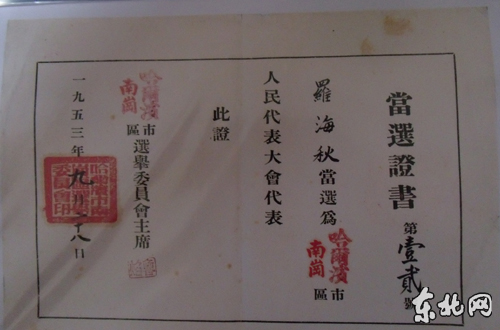 當選證書
第壹貳號
羅海秋當選爲哈爾濱市南崗區
人民代表大會代表
此證
哈爾濱市南崗區選舉委員會主席
一九五三年九月廿八日
东北网